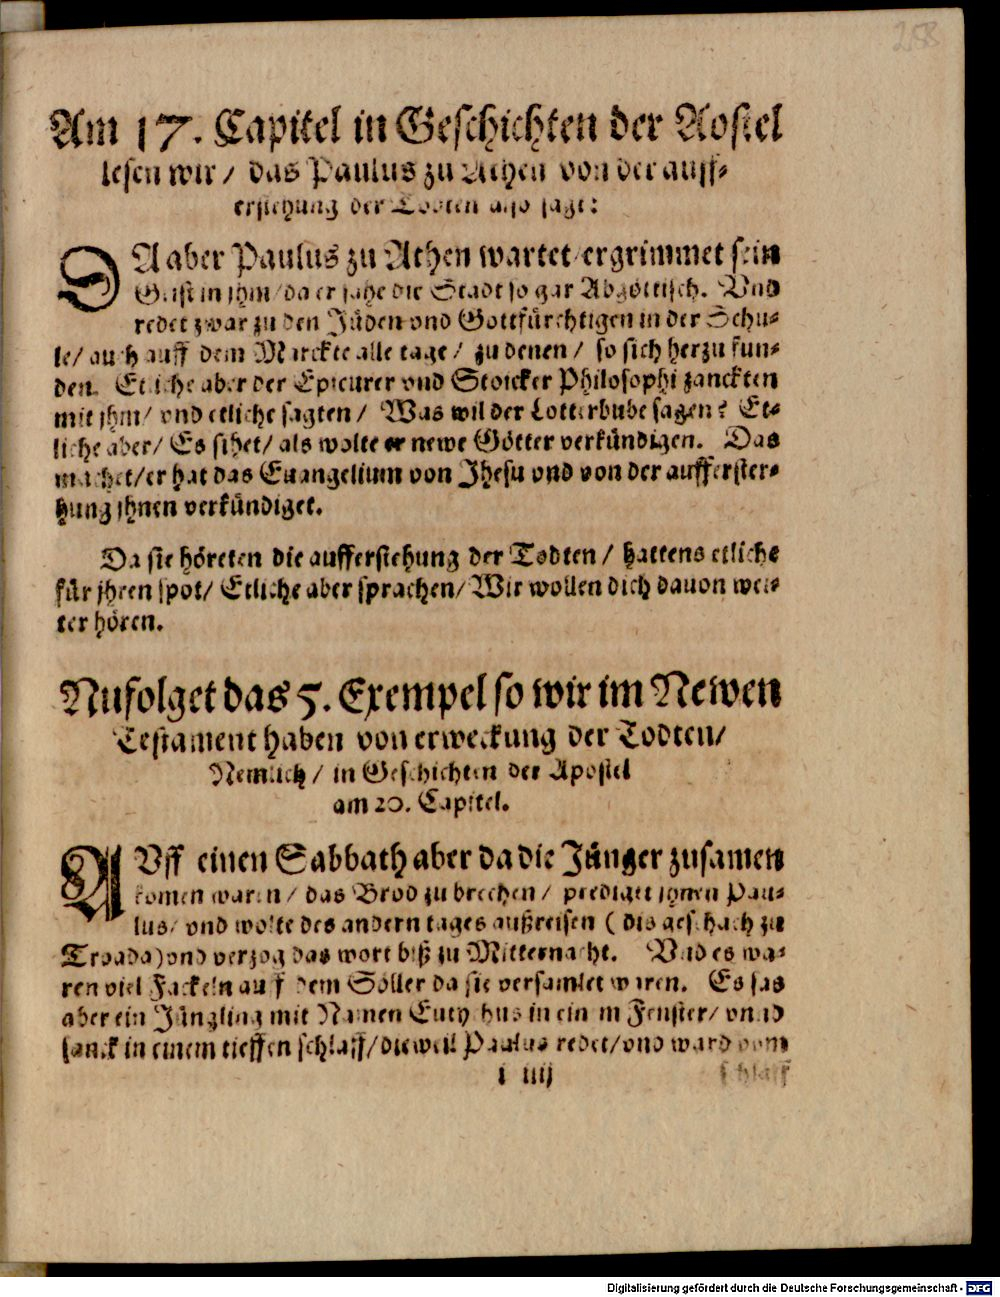 258
Am 17. Capitel in Geschichten der Aostel
lesen wir / das Paulus zu Athen von der auff⸗
erstehung der Todten also sagt:
DA aber Paulus zu Athen wartet / ergrimmet sein
Geist in jhm / da er sahe die Stadt so gar Abgöttisch. Vnd
redet zwar zu den Jüden vnd Gottfürchtigen in der Schu⸗
le / auch auff dem Marckte alle tage / zu denen / so sich herzu fun⸗
den. Etliche aber der Epicurer vnd Stoicker Philosophi zanckten
mit jhm / vnd etliche sagten / Was wil der Lotterbube sagen? Et⸗
liche aber / Es sihet / als wolte er newe Götter verkündigen. Das
machet / er hat das Euangelium von Jhesu vnd von der aufferster⸗
hung jhnen verkündiget.
Da sie höreten die aufferstehung der Todten / hattens etliche
für jhren spot / Etliche aber sprachen / Wir wollen dich dauon wei⸗
ter hören.
Nu folget das 5. Exempel so wir im Newen
Testament haben von erweckung der Todten /
Nemlich / in Geschichten der Apostel
am 20. Capitel.
AVff einen Sabbath aber da die Jünger zusamen
komen waren / das Brod zu brechen / prediget jhnen Pau⸗
lus / vnd wolte des andern tages außreisen ( dis geschach zu
Troada) vnd verzog das wort biß zu Mitternacht. Vnd es wa⸗
ren viel Fackeln auff dem Söller da sie versamlet waren. Es sas
aber ein Jüngling mit Namen Eutychus in einem Fenster / vnnd
sanck in einem tieffen schlaff / dieweil Paulus redet / vnd ward vom
i iiij schlaff
Digitalisierung gefördert durch die Deutsche Forschungsgemeinschaft - DFG